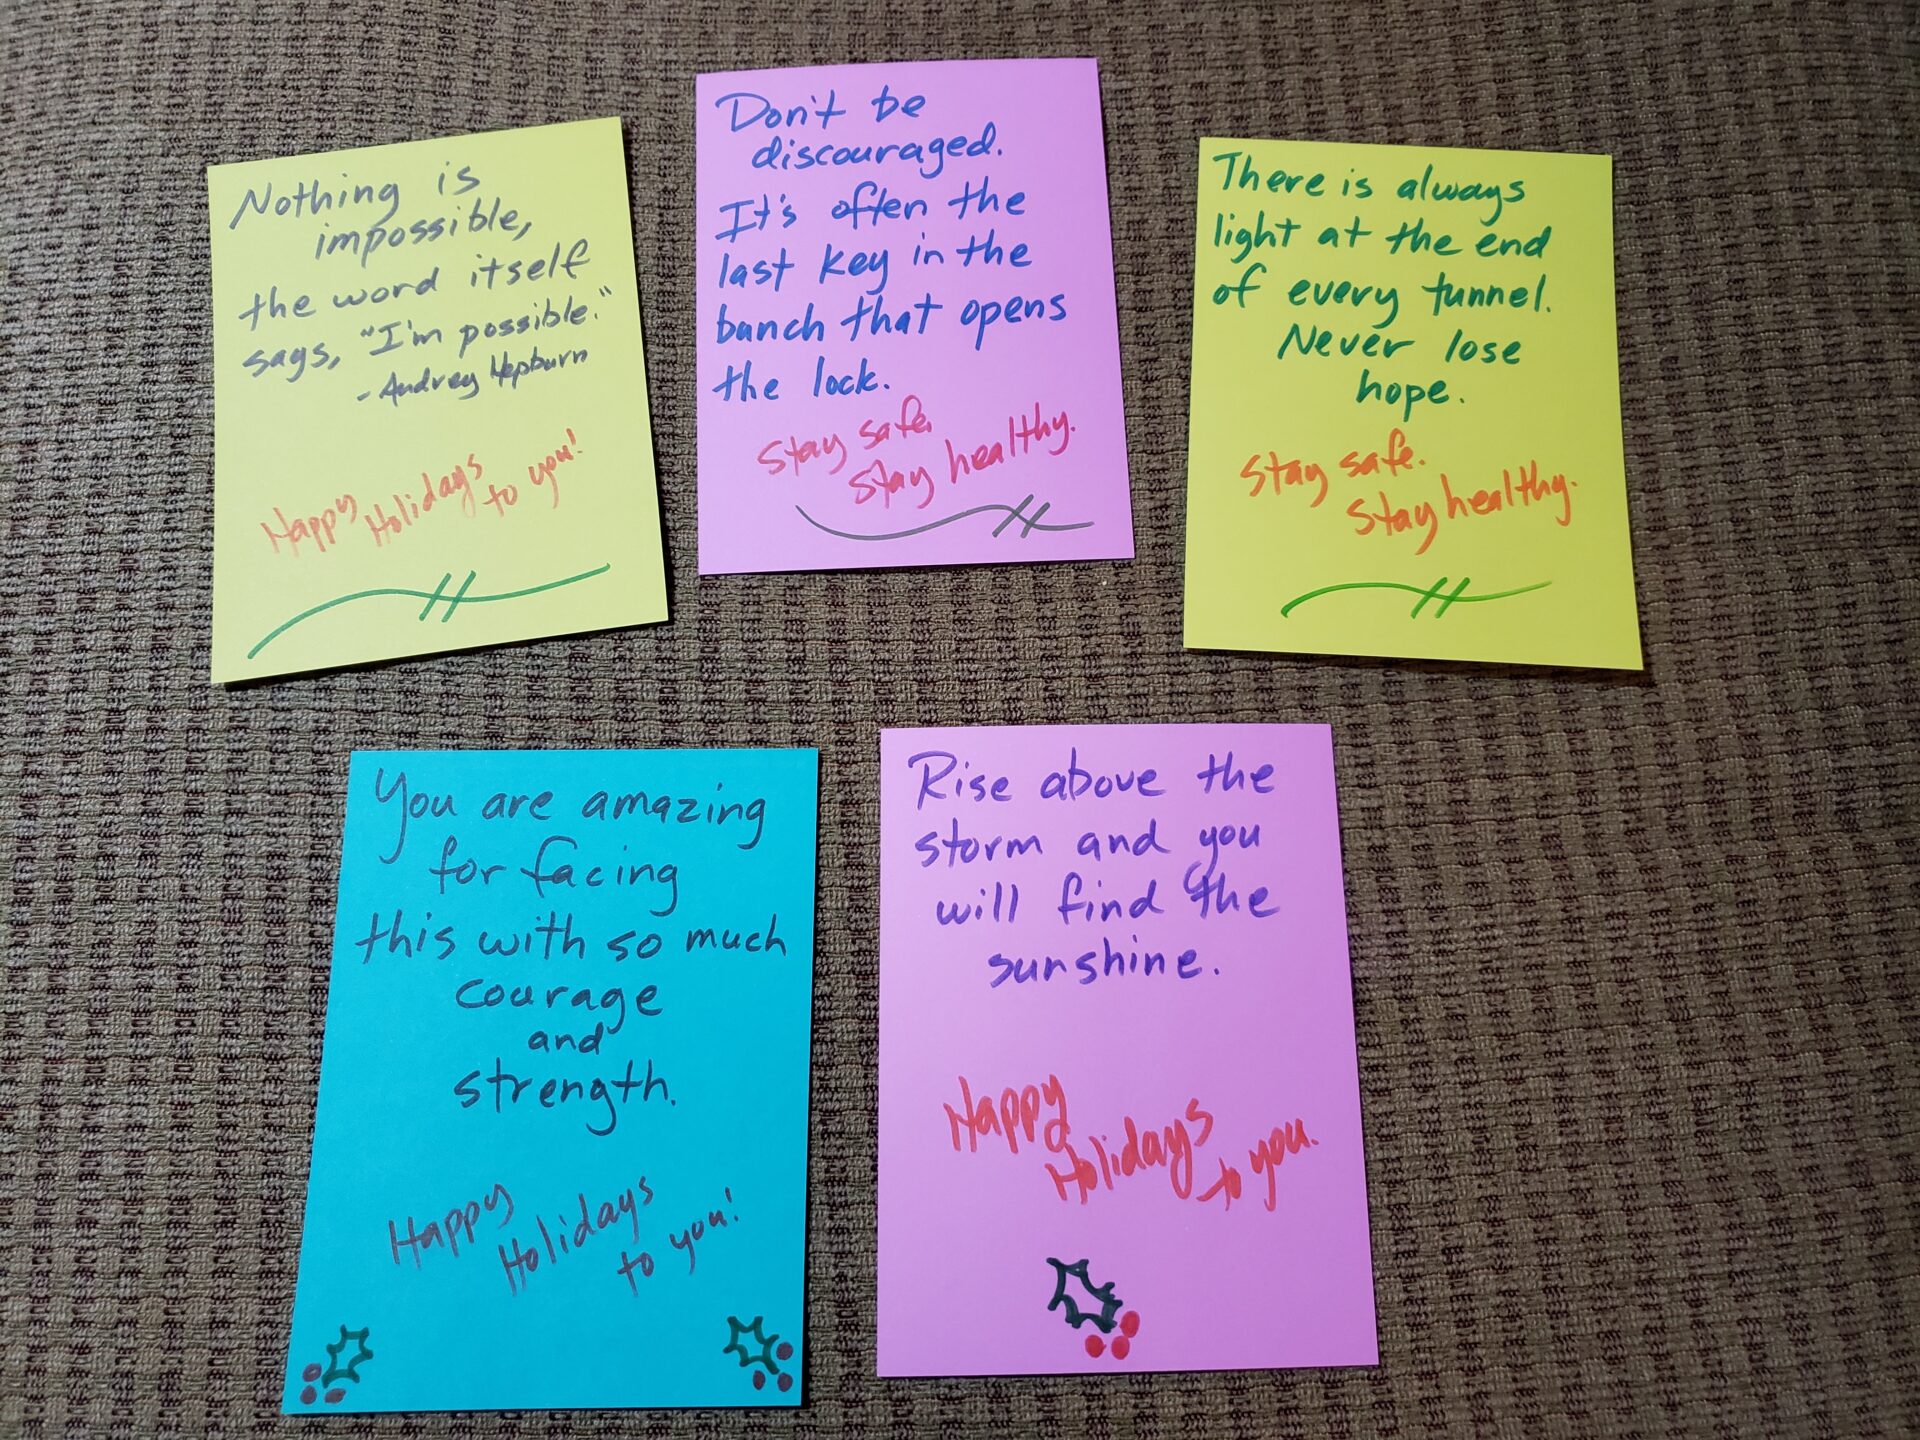 Nothing is
impossible,
the word itself
says, "I'm possible."
- Audrey Hepburn
Happy
Holidays
to you!
Don't be
discouraged.
It's often the
last key in the
bunch that opens
the lock.
Stay safe.
Stay healthy.
There is always
light at the end
of every tunnel.
Never lose
hope.
Stay safe.
Stay healthy.
You are amazing
for facing
this with so much
courage
and
strength.
Happy
Holidays
to you!
Rise above the
storm and you
will find the
sunshine.
Happy
Holidays
to you.